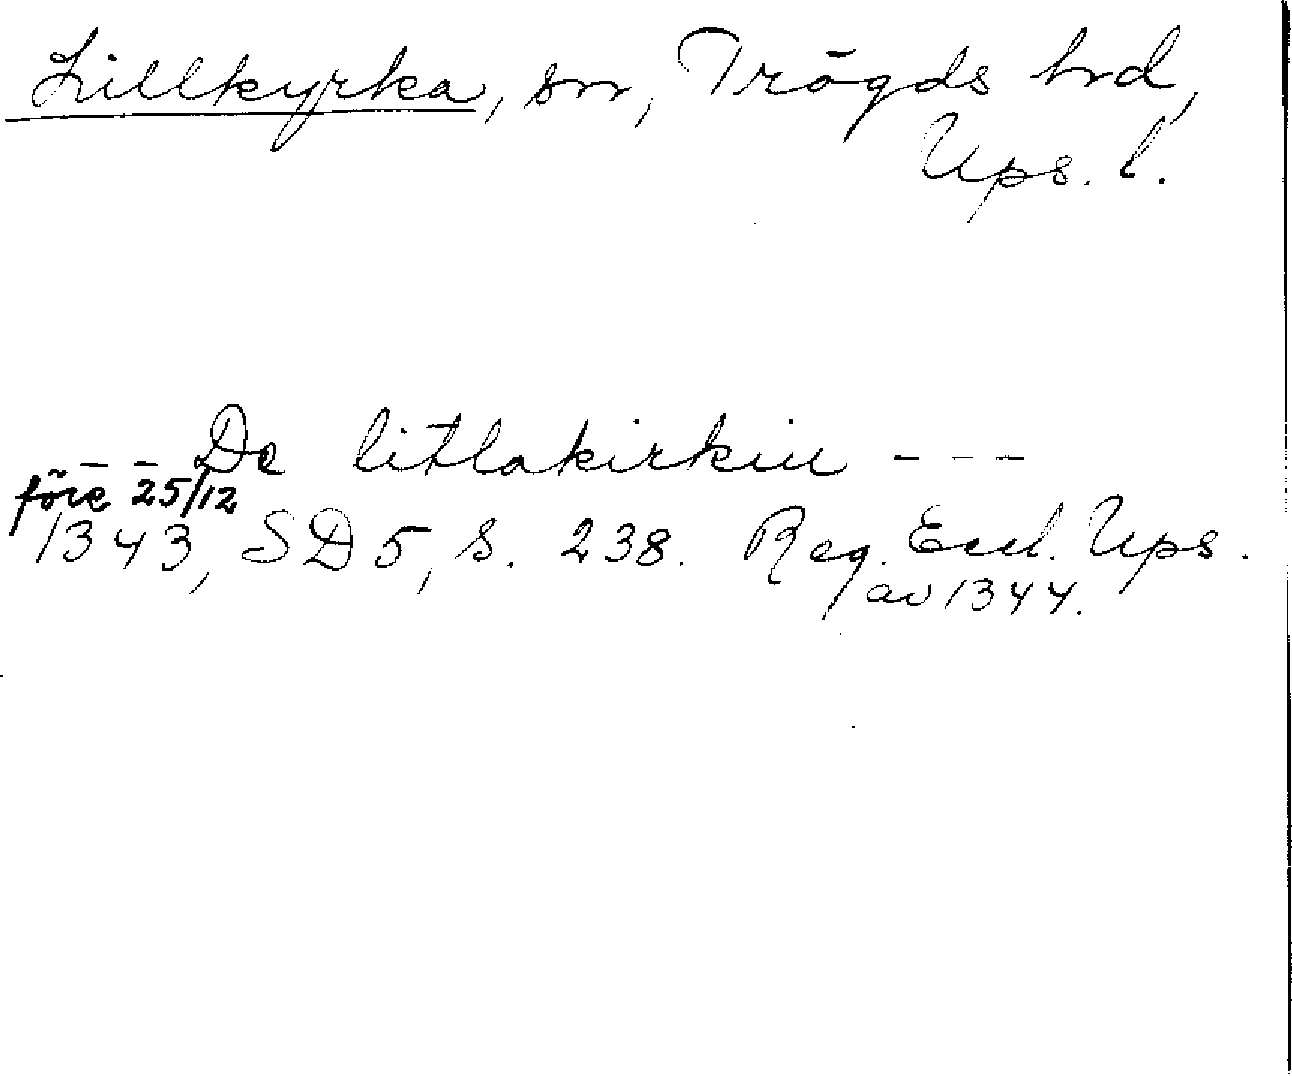 Lillkyrka, sn, Trögds hrd,
Ups. l.
- - De litlakirkiu - - -
före 25/12
1343, SD 5, s. 238. Reg. Eccl. Ups.
av 1344.